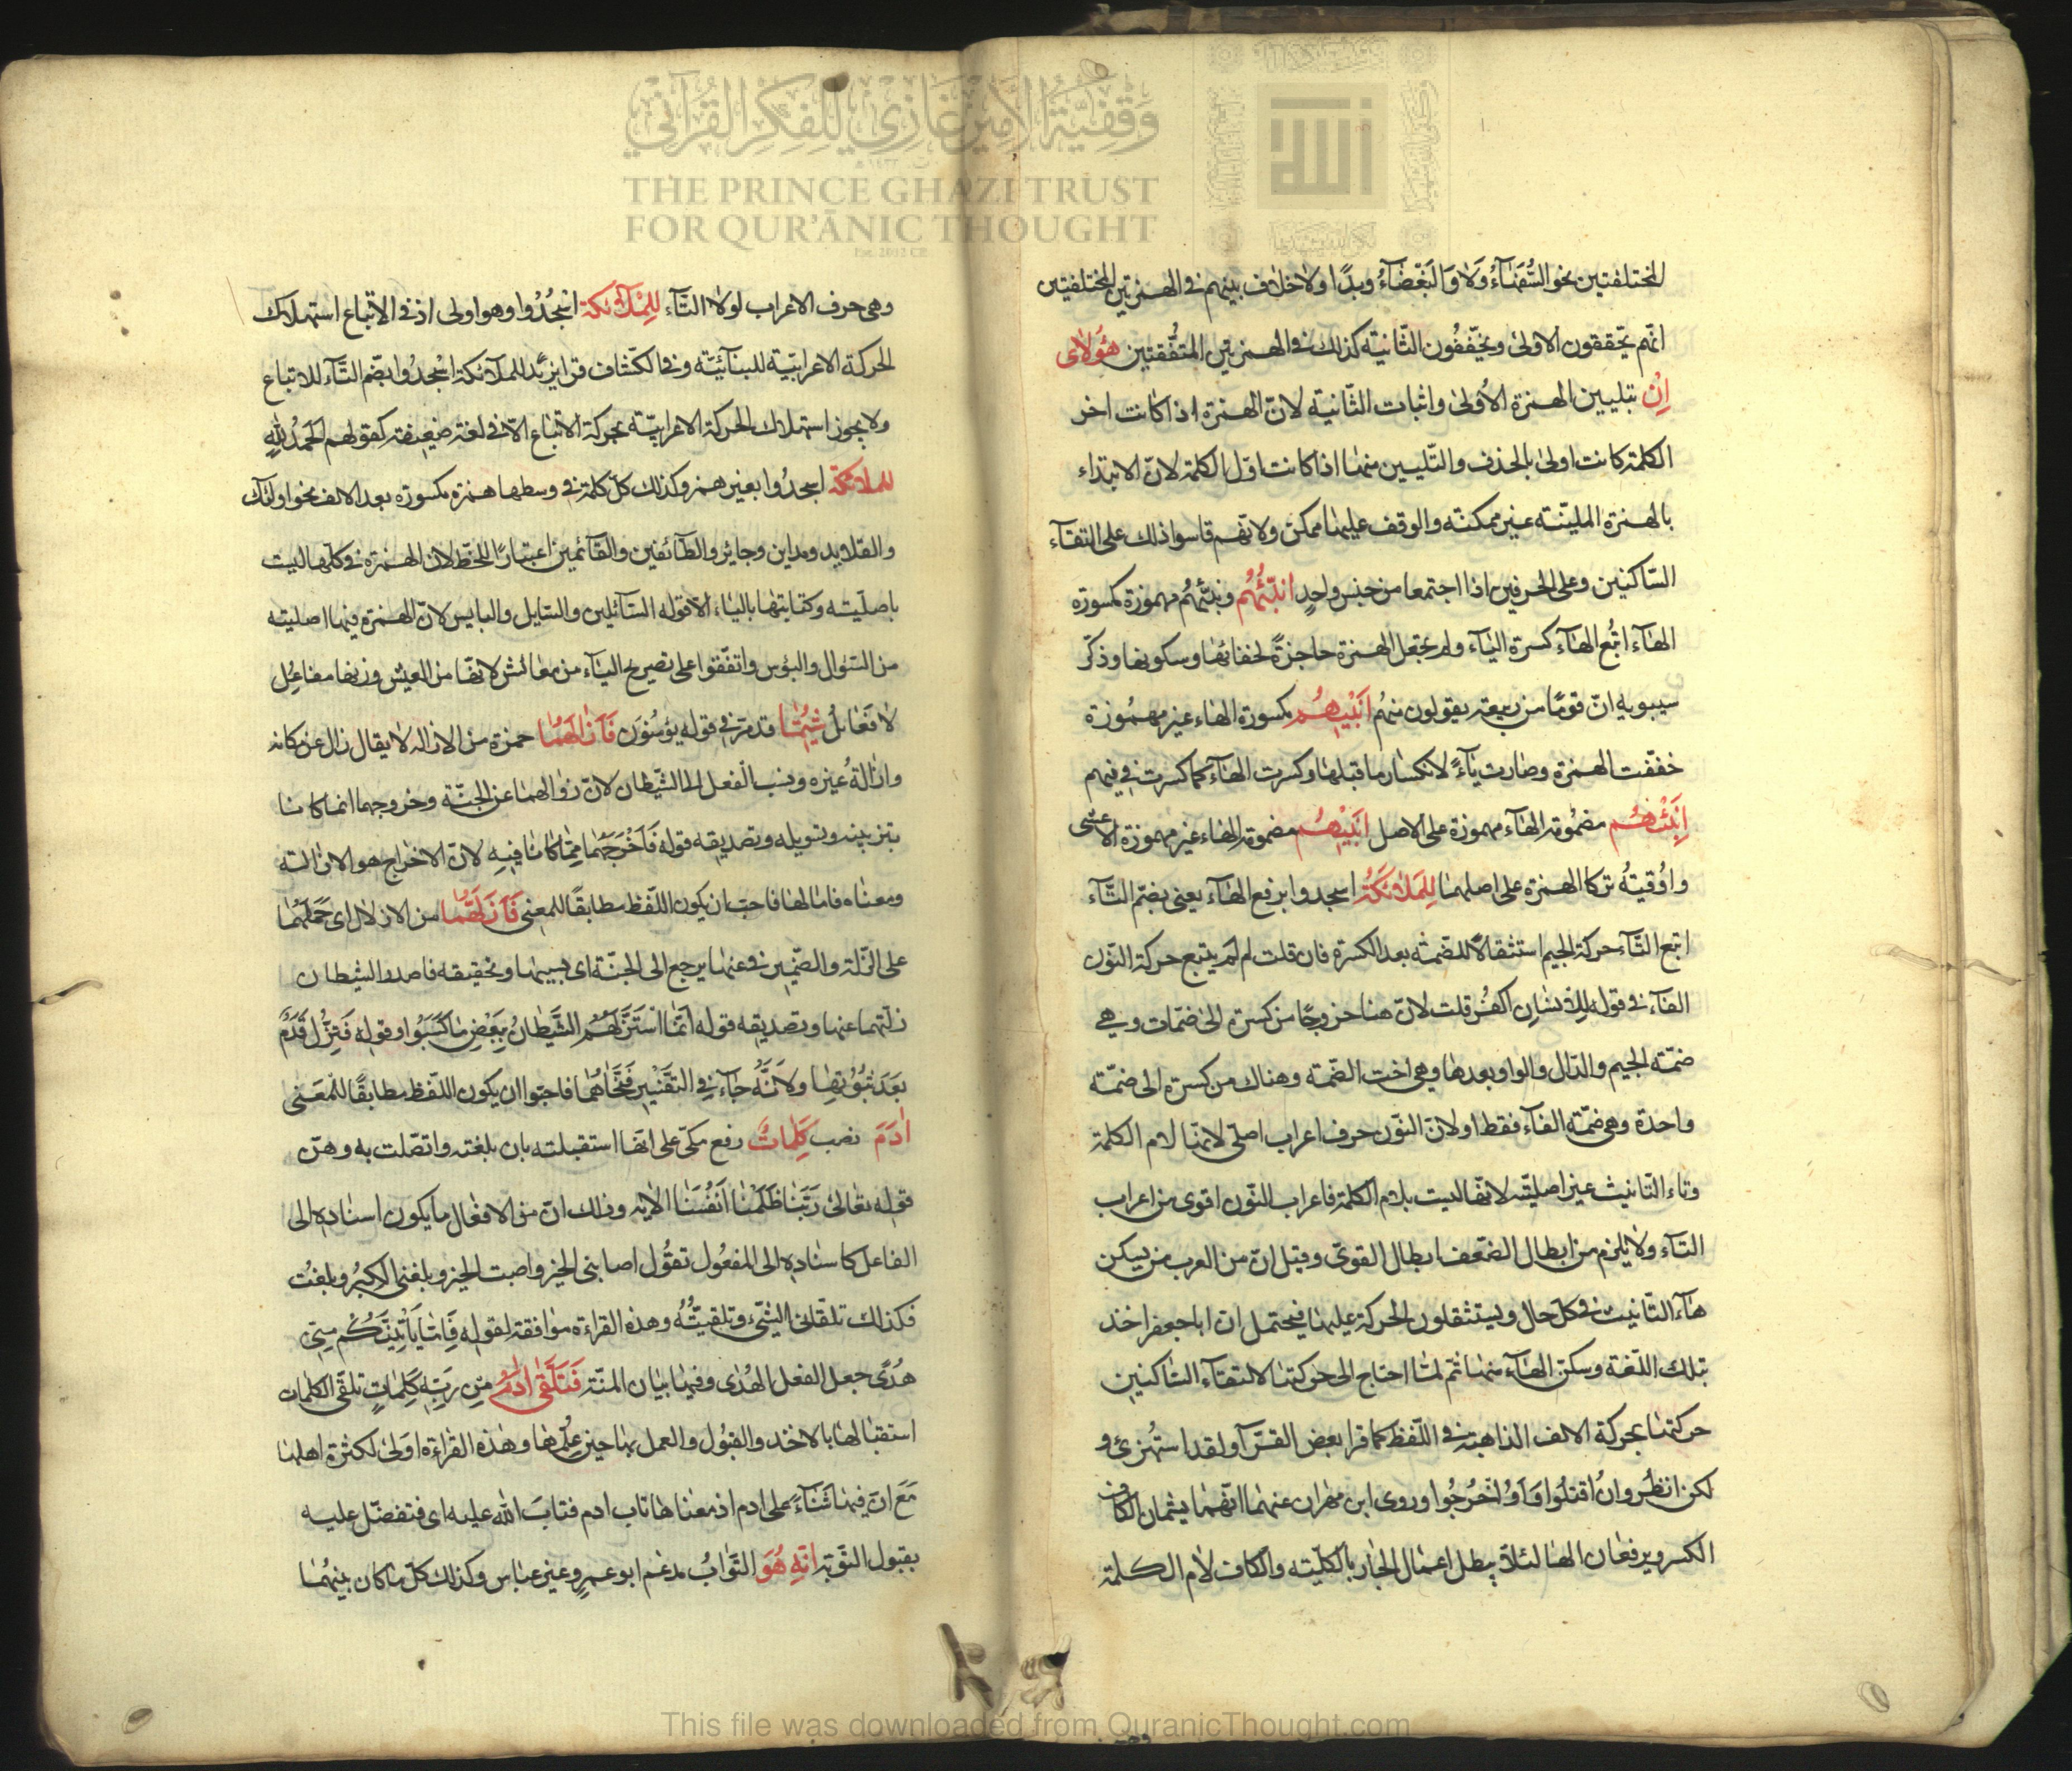 وقفية الأمير غازي للفكر القرآني
THE PRINCE GHAZI TRUST
FOR QUR'ĀNIC THOUGHT
المختلفتين نحو السُّفَهَاۤءُ وَلاٰ وَالبَغْضَاۤءُ وبدًا ولا خلاف بينهم في الهمزتين المختلفتين
انّهم يحّققون الاولىٰ ويخّففُون الثّانية كذلك في الهمزتين المتّفقتين هٰؤُلاٰۤىِ
اِنْ بتليين الهمزة الاُولىٰ واثبات الثّانية لانّ الهمزة اذا كانت اخر
الكلمة كانت اولىٰ بالحذف والتّليين منها اذا كانت اوّل الكلمة لانّ الابتداء
بالهمزة المليّنة غير ممكنة والوقف عليها ممكن ولانّهم قاسوا ذلك على التقاۤء
السّاكنين وعلى الحرفين اذا اجتمعا من جنس واحدٍ انبّئْهُم ونبّئهُم مهموزة مكسورة
الهاۤء اتُبع الهاۤء كسرة الباۤء ولم يجعل الهمزة حاجزةً لخفائها وسكونها وذكر
سيبويه انّ قومًا من ربيعة يقولون منهُم اَنْبِيهِم مكسورة الهاء غير مهمُوزة
خفّفت الهمزة وصارت ياۤءً لانكسار ما قبلها وكسرت الهاۤء كما كسرت في فيهم
اَنبِئْهُم مضمُومة الهاۤء مهموزة على الاصل اَنبِيْهُم مضمومة الهاء غير مهموزة الاعشى
واوُقيّةُ تركا الهمزة على اصلهما لِلمَلاٰۤئِكَةُ اسجدوا برفع الهاۤء يعنى بضمّ التّاۤء
اتبع التّاۤء حركة الجيم استثقالاً للضّمّة بعد الكسرة فان قلت لم لَم يتبع حركة النّون
الفاۤء في قوله لِلاِنسَانِ اكفُر قلت لانّ هنا خروجًا من كسرة الىٰ ضمّات وهي
ضمّة الجيم والدّال والواو بعدها وهي اخت الضّمة وهناك من كسرة الى ضمّة
واحدة وهي ضمّة الفاۤء فقط اولانّ النّون حرف اعراب اصلىّ لانّها لام الكلمة
وتاء التّانيث غير اصليّة لانّها ليست بلام الكلمة فاعراب النّون اقوى من اعراب
التّاۤء ولا يلزم من ابطال الضّعف ابطال القوىّ وقيل انّ من العرب من يسكن
هاۤء التّانيث في كلّ حال ويستثقلون الحركة عليها فيحتمل انّ ابا جعفر اخذ
بتلك اللّغة وسكّن الهاۤء منها ثمّ لمّا احتاج الى حركتها لالتقاۤء السّاكنين
حركتها بحركة الالف الذاهبة في اللّفظ كما قرا بعض القرّاۤء ولقد استُهزئ و
لكن انظُر وانُ اقتلُوا وَاَوُ اخرُجُوا وروى ابن مهران عنهما انّهما يشمان الكاف
الكسر ويرفعان الها لئلاّ يبطل اعمال الجار بالكلّية والكاف لام الكلمة
وهي
وهى حرف الاعراب لولا التّاۤء لِلمَلاۤئِكَة اسْجُدُوا وهو اولى اذ في الاتباع استهلاك
الحركة الاعرابيّة للبنائيّة وفى الكشّاف قرا يزيد للملاۤئكة اسْجدُوا بضّم التّاۤء للاتباع
ولا يجوز استهلاك الحركة الاعرابيّة بحركة الاتباع الاّ في لغة ضعيفة كقولهم الحمدُ لُلّه
للملائكة اسجدُوا بغير همز وكذلك كلّ كلمة في وسطها همزة مكسورة بعد الالف نحو اولئك
والقلايد ومداين وجاير والطّآئفين والقاۤئمين اعتبارًا للخطّ لانّ الهمزة في كلّها ليست
باصليّة وكتابتها بالياء الاّ قوله السّاۤئلين والسّايل والبايس لانّ الهمزة فيها اصلية
من السّؤال والبؤس واتفّقوا على تصريح الياۤء من معائش لانّها من العيش وزنها مفاعِل
لا فعَائل شِيتُمَا قد مرّ في قوله يؤمنُون فَاَزَالَهُمَا حمزة من الازالة لا يقال زال عن مكانه
وازالهُ غيره ونسب الفعل الى الشّيطان لانّ زوالهما عن الجنّة وخروجهما انما كانا
بتزيينه وتسويله وتصديقه قوله فَاَخْرَجَهُمَا مِمّا كَانَا فِيهِ لانّ الاخراج هو الازالة
ومعناه فامالهما فاحبّ ان يكون اللّفظ مطابقًا للمعنى فَاَزَلَّهُمَا من الازلال اى حَمَلَهُمَا
على الزّلة والضّمير في عنها يرجع الى الجنّة اى بسببها وتحقيقه فاصدر الشيطان
زلّتهما عنها وتصديقه قوله اَنّمَا اسْتَزَلَّهُمُ الشَّيْطَانُ بِبَعْضِ مَا كَسَبُوا وقوله فَتَزِلَّ قَدَمٌ
بَعَدَ ثُبُوْتِهَا ولاَنّهُ جَاۤء في التفْسِير فنَحّاهُمَا فاحبّوا ان يكون اللّفظ مطابقًا للمَعْنى
اٰدَمَ نصب كَلِمَاتٌ رفع مكّى على انّها استقبلته بان بلغته واتصّلت به وهنّ
قوله تعالىٰ رَبَّنَا ظَلَمْنَا اَنْفُسَنَا الاٰية وذلك انّ من الافعال ما يكون اسناده الى
الفاعل كاسناده الى المفعُول تقوُل اصابنى الخير واصبت الخير وبلغنى الكبَرُ وبلغتُ
فكذلك تلقّانى الشّىء وتلقيتُه وهذه القراءة موافقة لقوله فَاِمّا يَاْتِيَنَّكُم مِنّى
هُدًى جعل الفعل الهُدٰى وفيها بيان المنّة فَتَلَقّٰى اٰدَمُ مِن رَبِّهِ كَلِمَاتٍ تلقّى الكلمات
استقبالها بالاخذ والقبُول والعمل بها حين عَلِمَها وهٰذه القرٰاءة اولىٰ لكثرة اهلها
مَعَ انّ فيها ثَنَاۤءً على ادم اذ معناها تاب ادم فتابَ الله عليه اى فتفضّل عليه
بقبول التّوبة انّهِ هُوَ التّوابُ مدغم ابو عمرٍو غير عباس وكذلك كلّ ما كان بينهُمَا
This file was downloaded from QuranicThought.com